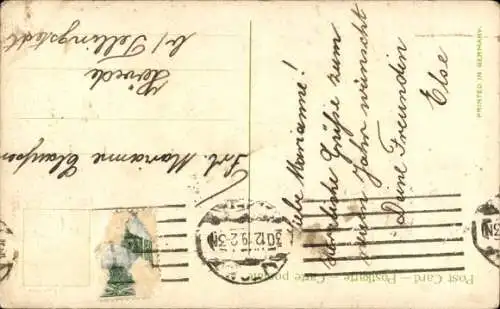 Liebe Marianne!
Herzliche Grüße zum
neuen Jahr wünscht
Deine Freundin
Else
Frl. Marianne Claussen
Hövede
b/ Tellingstedt
Post Card — Postkarte — Carte postale
PRINTED IN GERMANY.
30.12.19.2-3N